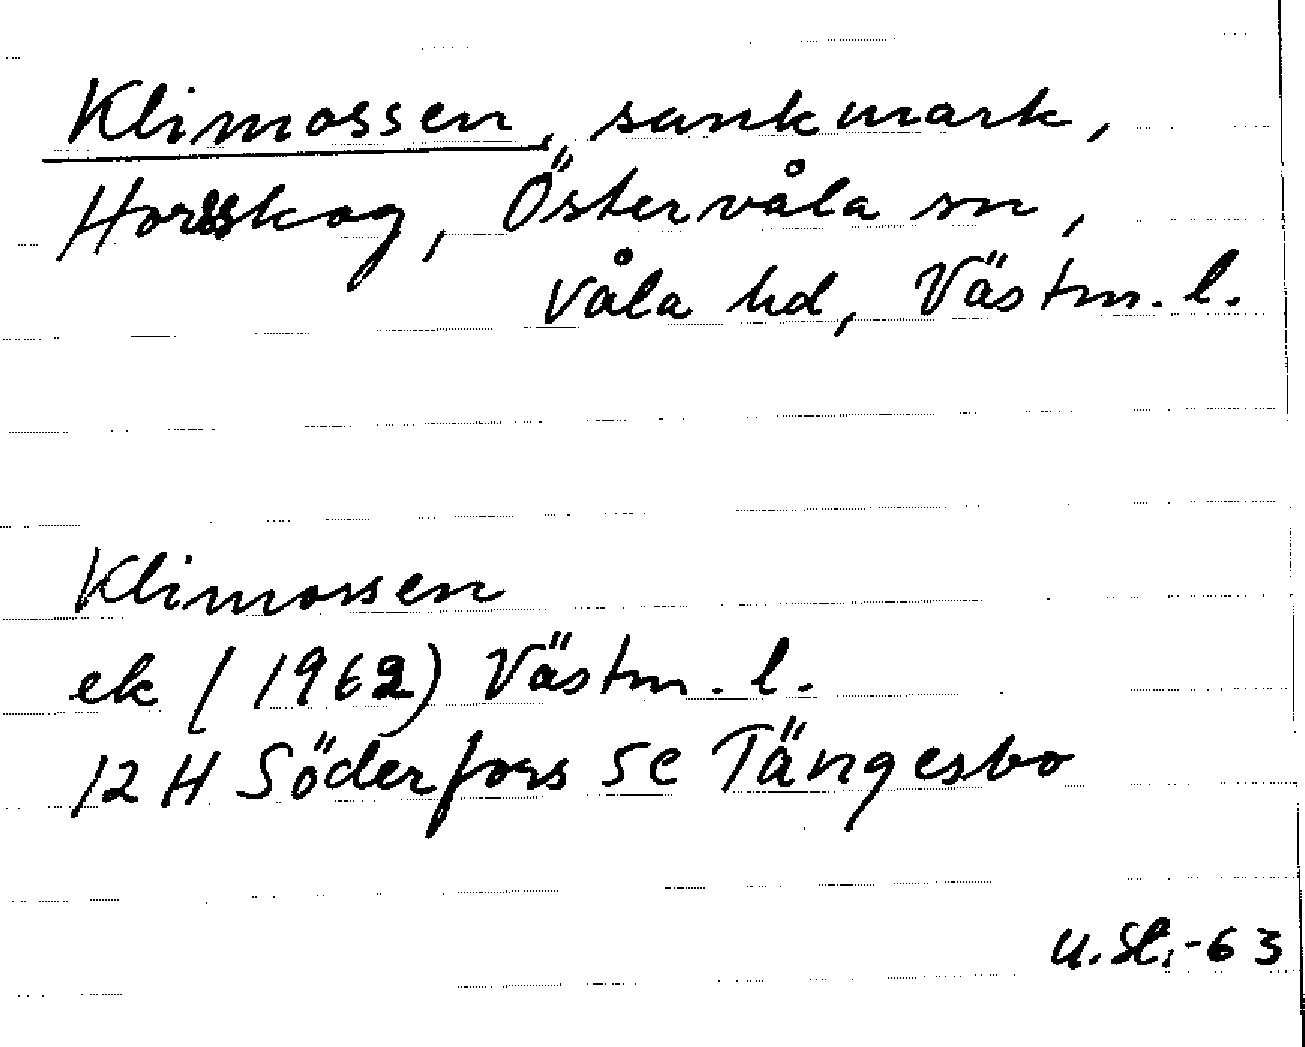 Klimossen, sankmark,
Horsskog, Östervåla sn,
Våla hd, Västm. l.
Klimossen
ek (1962) Västm. l.
12 H Söderfors 5c Tängesbo
-63